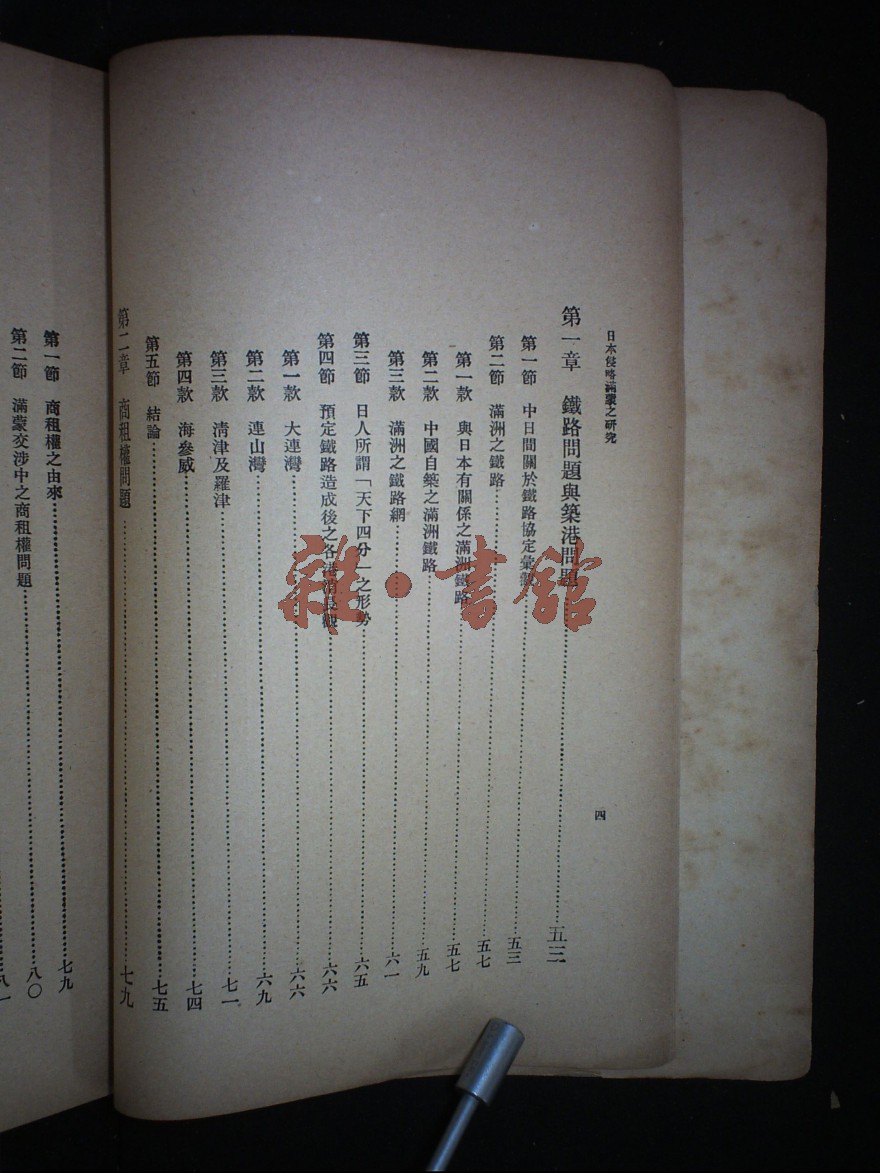 日本侵略滿蒙之研究
四
第一章 鐵路問題與築港問題……五三
第一節 中日間關於鐵路協定彙……五三
第二節 滿洲之鐵路……五七
第一款 與日本有關係之滿洲鐵路……五七
第二款 中國自築之滿洲鐵路……五九
第三款 滿洲之鐵路網……六一
第三節 日人所謂「天下四分」之形勢……六五
第四節 預定鐵路造成後之各港消長觀……六六
第一款 大連灣……六六
第二款 連山灣……六九
第三款 清津及羅津……七一
第四款 海參威……七四
第五節 結論……七五
第二章 商租權問題……七九
第一節 商租權之由來……七九
第二節 滿蒙交涉中之商租權問題……八〇
八一
雜·書館